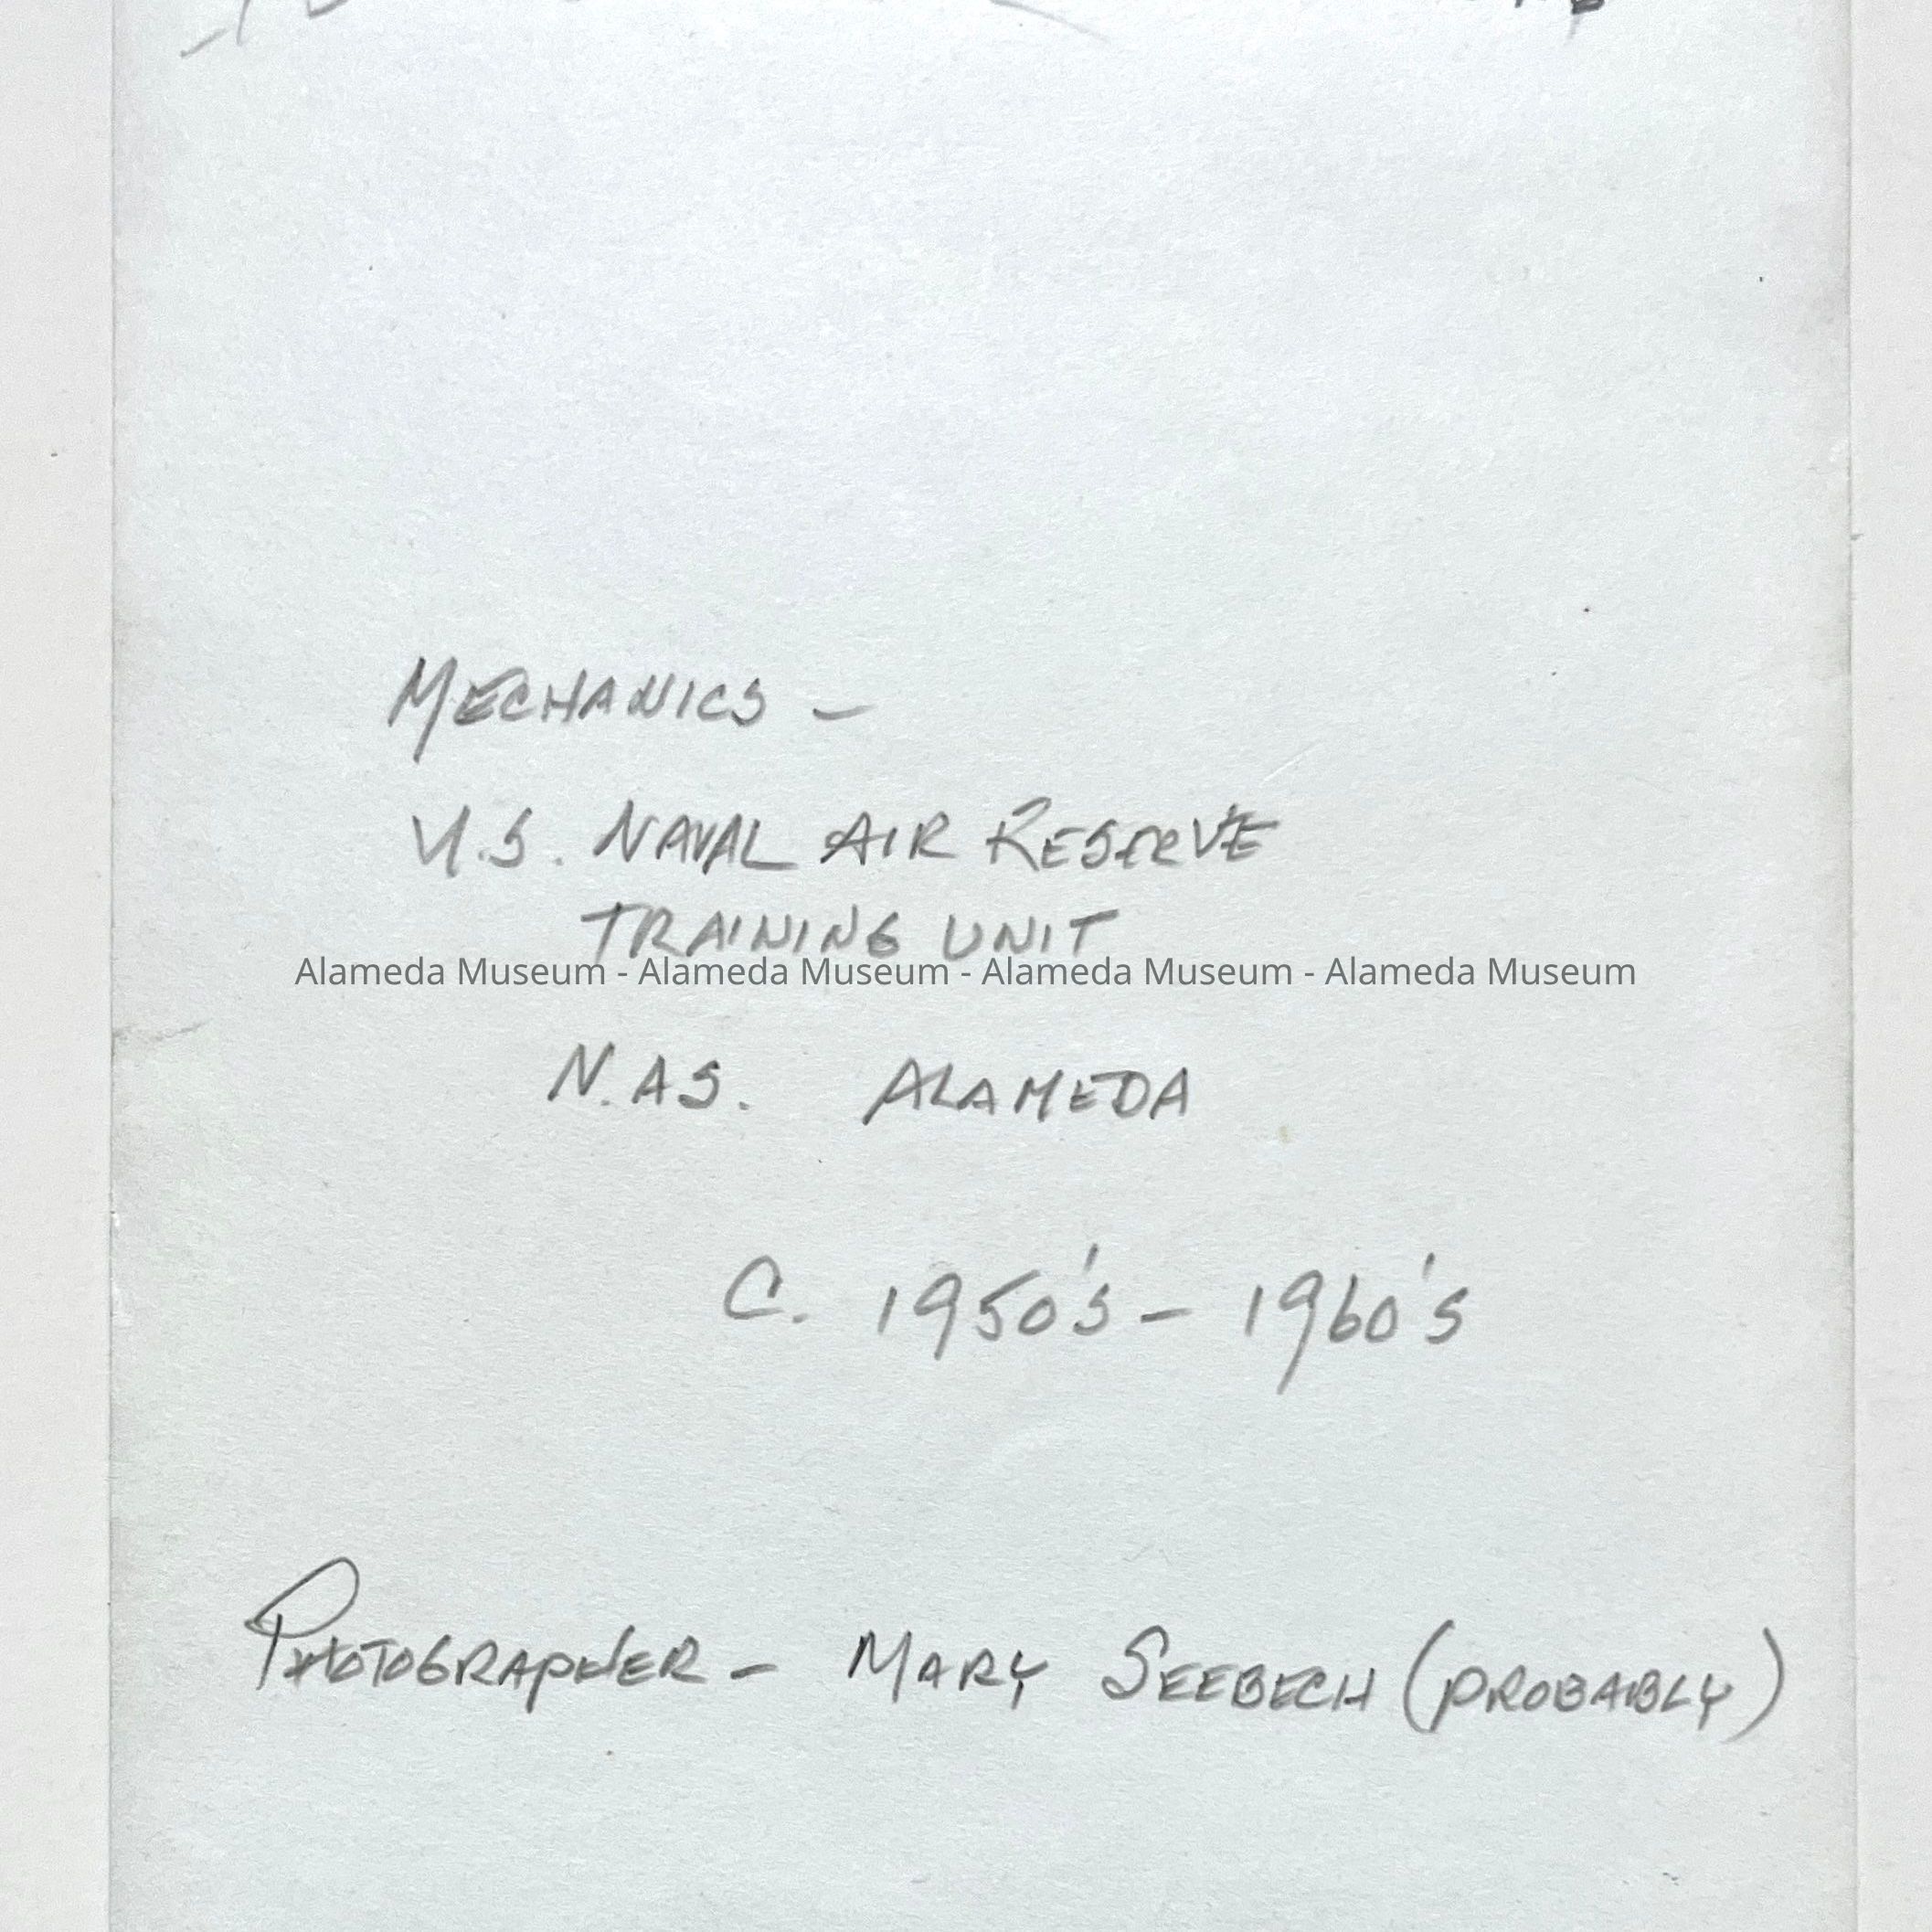 MECHANICS -
U.S. NAVAL AIR RESERVE
TRAINING UNIT
Alameda Museum - Alameda Museum - Alameda Museum - Alameda Museum
N.A.S. ALAMEDA
C. 1950's - 1960's
PHOTOGRAPHER - MARY SEEBECH (PROBABLY)